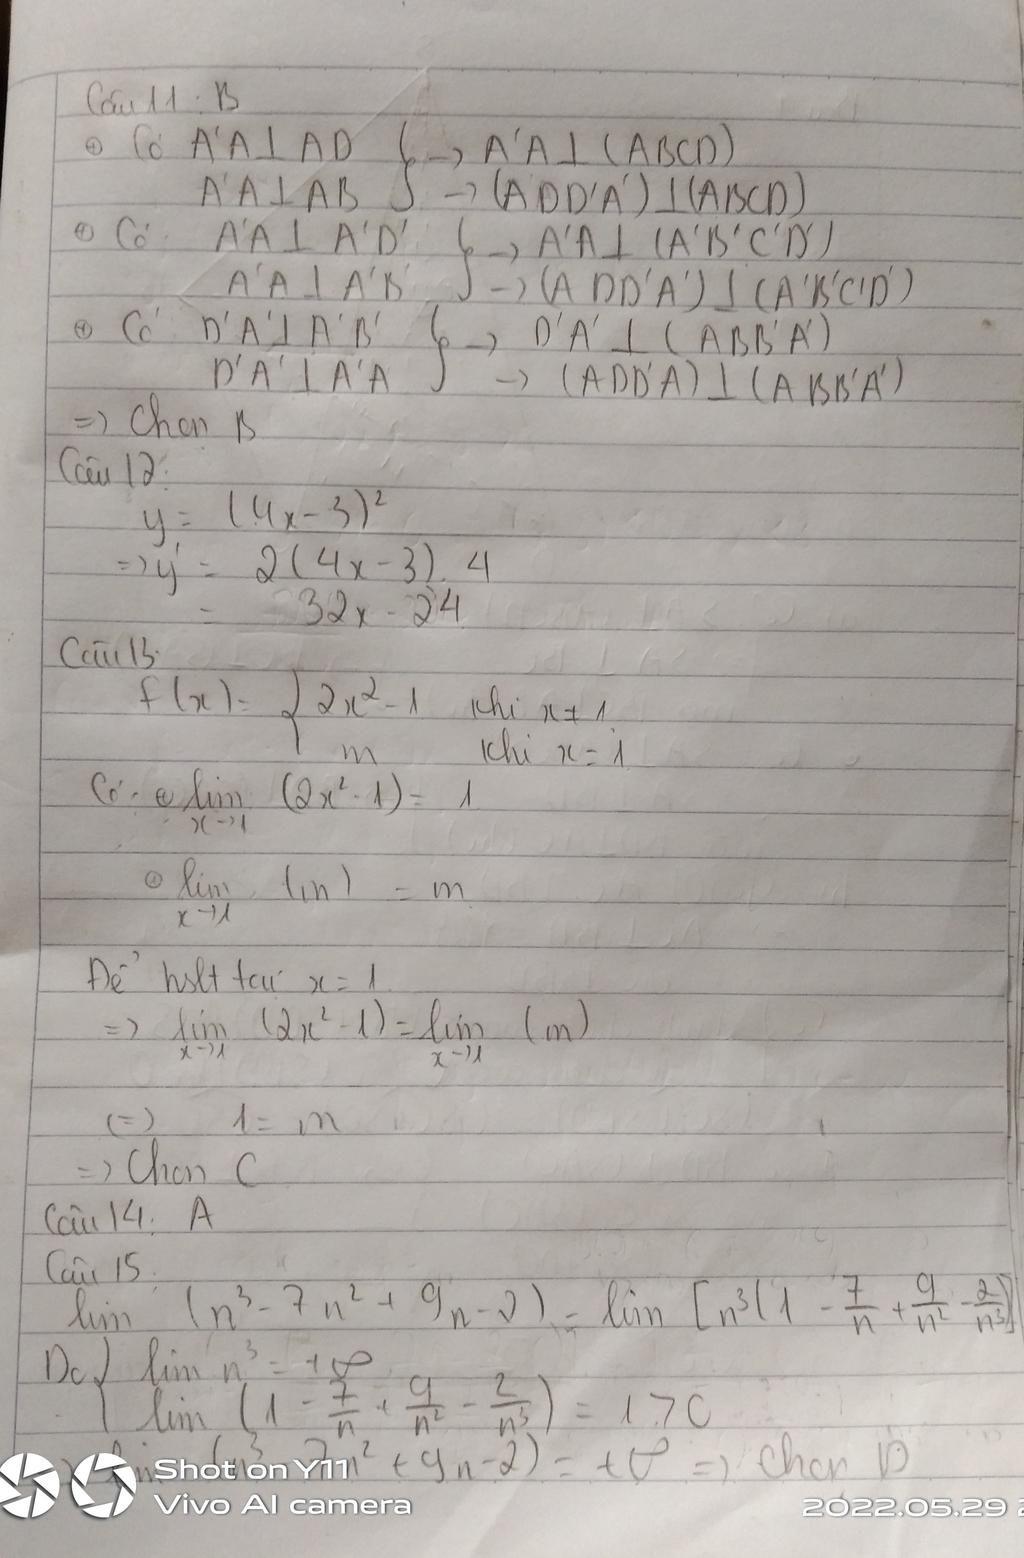 Câu 11: B
⊕ Có A'A ⊥ AD } → A'A ⊥ (ABCD)
A'A ⊥ AB } → (ADD'A') ⊥ (ABCD)
⊕ Có A'A ⊥ A'D' } → A'A ⊥ (A'B'C'D')
A'A ⊥ A'B' } → (ADD'A') ⊥ (A'B'C'D')
⊕ Có D'A' ⊥ A'B' } → D'A' ⊥ (ABB'A')
D'A' ⊥ A'A } → (ADD'A) ⊥ (ABB'A')
=> Chọn B
Câu 12:
y = (4x-3)²
=> y' = 2(4x-3).4
= 32x - 24
Câu 13:
f(x) = { 2x²-1 khi x≠1
m khi x=1
Có: ⊕ lim (2x²-1) = 1
x→1
⊕ lim (m) = m
x→1
Để hslt tại x=1
=> lim (2x²-1) = lim (m)
x→1 x→1
(=) 1 = m
=> Chọn C
Câu 14: A
Câu 15:
lim (n³-7n²+9n-2) = lim [n³(1 - 7/n + 9/n² - 2/n³)]
Do { lim n³ = +∞
lim (1 - 7/n + 9/n² - 2/n³) = 1 > 0
(n³-7n²+9n-2) = +∞ => Chọn D
Shot on Y11
Vivo AI camera
2022.05.29